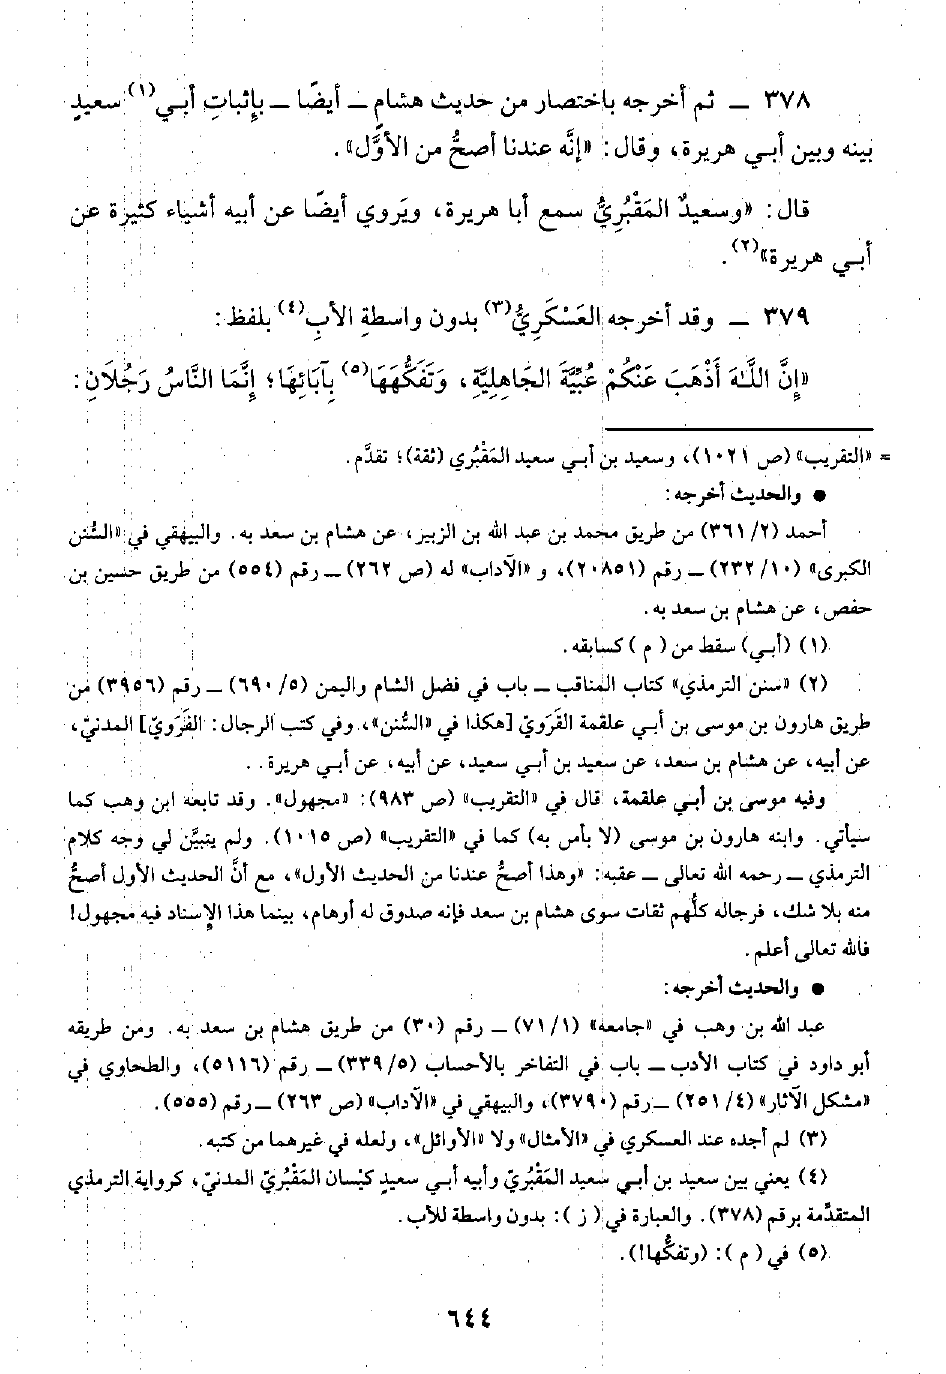 ٣٧٨ ــ ثم أخرجه باختصار من حديث هشامٍ ــ أيضًا ــ بإثباتِ أبي(١) سعيدٍ
بينه وبين أبي هريرة، وقال: «إنَّه عندنا أصحُّ من الأوَّل».
قال: «وسعيدٌ المَقْبُرِيُّ سمع أبا هريرة، ويَروي أيضًا عن أبيه أشياء كثيرة عن
أبي هريرة»(٢).
٣٧٩ ــ وقد أخرجه العَسْكَرِيُّ(٣) بدون واسطةِ الأبِ(٤) بلفظ:
«إِنَّ اللَّهَ أَذْهَبَ عَنْكُمْ عُبِّيَّةَ الجَاهِلِيَّةِ، وَتَفَكُّهَهَا(٥) بِآبَائِهَا؛ إِنَّمَا النَّاسُ رَجُلَانِ:
= «التقريب» (ص ١٠٢١)، وسعيد بن أبي سعيد المَقْبُري (ثقة)؛ تقدَّم.
● والحديث أخرجه:
أحمد (٢/ ٣٦١) من طريق محمد بن عبد الله بن الزبير، عن هشام بن سعد به. والبيهقي في «السُّنن
الكبرى» (١٠/ ٢٣٢) ــ رقم (٢٠٨٥١)، و «الآداب» له (ص ٢٦٢) ــ رقم (٥٥٤) من طريق حسين بن
حفص، عن هشام بن سعد به.
(١) (أبي) سقط من ( م ) كسابقه.
(٢) «سنن الترمذي» كتاب المناقب ــ باب في فضل الشام واليمن (٥/ ٦٩٠) ــ رقم (٣٩٥٦) من
طريق هارون بن موسى بن أبي علقمة القَرَوي [هكذا في «السُّنن»، وفي كتب الرجال: الفَرَويّ] المدنيّ،
عن أبيه، عن هشام بن سعد، عن سعيد بن أبي سعيد، عن أبيه، عن أبي هريرة. .
وفيه موسى بن أبي علقمة، قال في «التقريب» (ص ٩٨٣): «مجهول». وقد تابعه ابن وهب كما
سيأتي. وابنه هارون بن موسى (لا بأس به) كما في «التقريب» (ص ١٠١٥). ولم يتبيَّن لي وجه كلام
الترمذي ــ رحمه الله تعالى ــ عقبه: «وهذا أصحُّ عندنا من الحديث الأول»، مع أنَّ الحديث الأول أصحُّ
منه بلا شك، فرجاله كلُّهم ثقات سوى هشام بن سعد فإنه صدوق له أوهام، بينما هذا الإسناد فيه مجهول!
فالله تعالى أعلم.
● والحديث أخرجه:
عبد الله بن وهب في «جامعه» (١/ ٧١) ــ رقم (٣٠) من طريق هشام بن سعد به. ومن طريقه
أبو داود في كتاب الأدب ــ باب في التفاخر بالأحساب (٥/ ٣٣٩) ــ رقم (٥١١٦)، والطحاوي في
«مشكل الآثار» (٤/ ٢٥١) ــ رقم (٣٧٩٠)، والبيهقي في «الآداب» (ص ٢٦٣) ــ رقم (٥٥٥).
(٣) لم أجده عند العسكري في «الأمثال» ولا «الأوائل»، ولعله في غيرهما من كتبه.
(٤) يعني بين سعيد بن أبي سعيد المَقْبُريّ وأبيه أبي سعيدٍ كيْسان المَقْبُريّ المدنيّ، كرواية الترمذي
المتقدِّمة برقم (٣٧٨). والعبارة في ( ز ): بدون واسطة للأب.
(٥) في ( م ): (وتفكُّها!).
٦٤٤